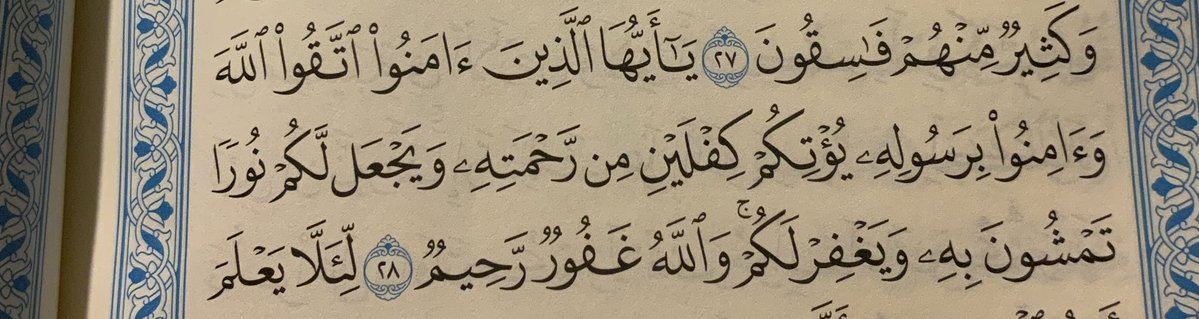 وَكَثِيرٌ مِّنْهُمْ فَٰسِقُونَ ٢٧ يَٰٓأَيُّهَا ٱلَّذِينَ ءَامَنُوا۟ ٱتَّقُوا۟ ٱللَّهَ
وَءَامِنُوا۟ بِرَسُولِهِۦ يُؤْتِكُمْ كِفْلَيْنِ مِن رَّحْمَتِهِۦ وَيَجْعَل لَّكُمْ نُورًا
تَمْشُونَ بِهِۦ وَيَغْفِرْ لَكُمْ ۚ وَٱللَّهُ غَفُورٌ رَّحِيمٌ ٢٨ لِّئَلَّا يَعْلَمَ